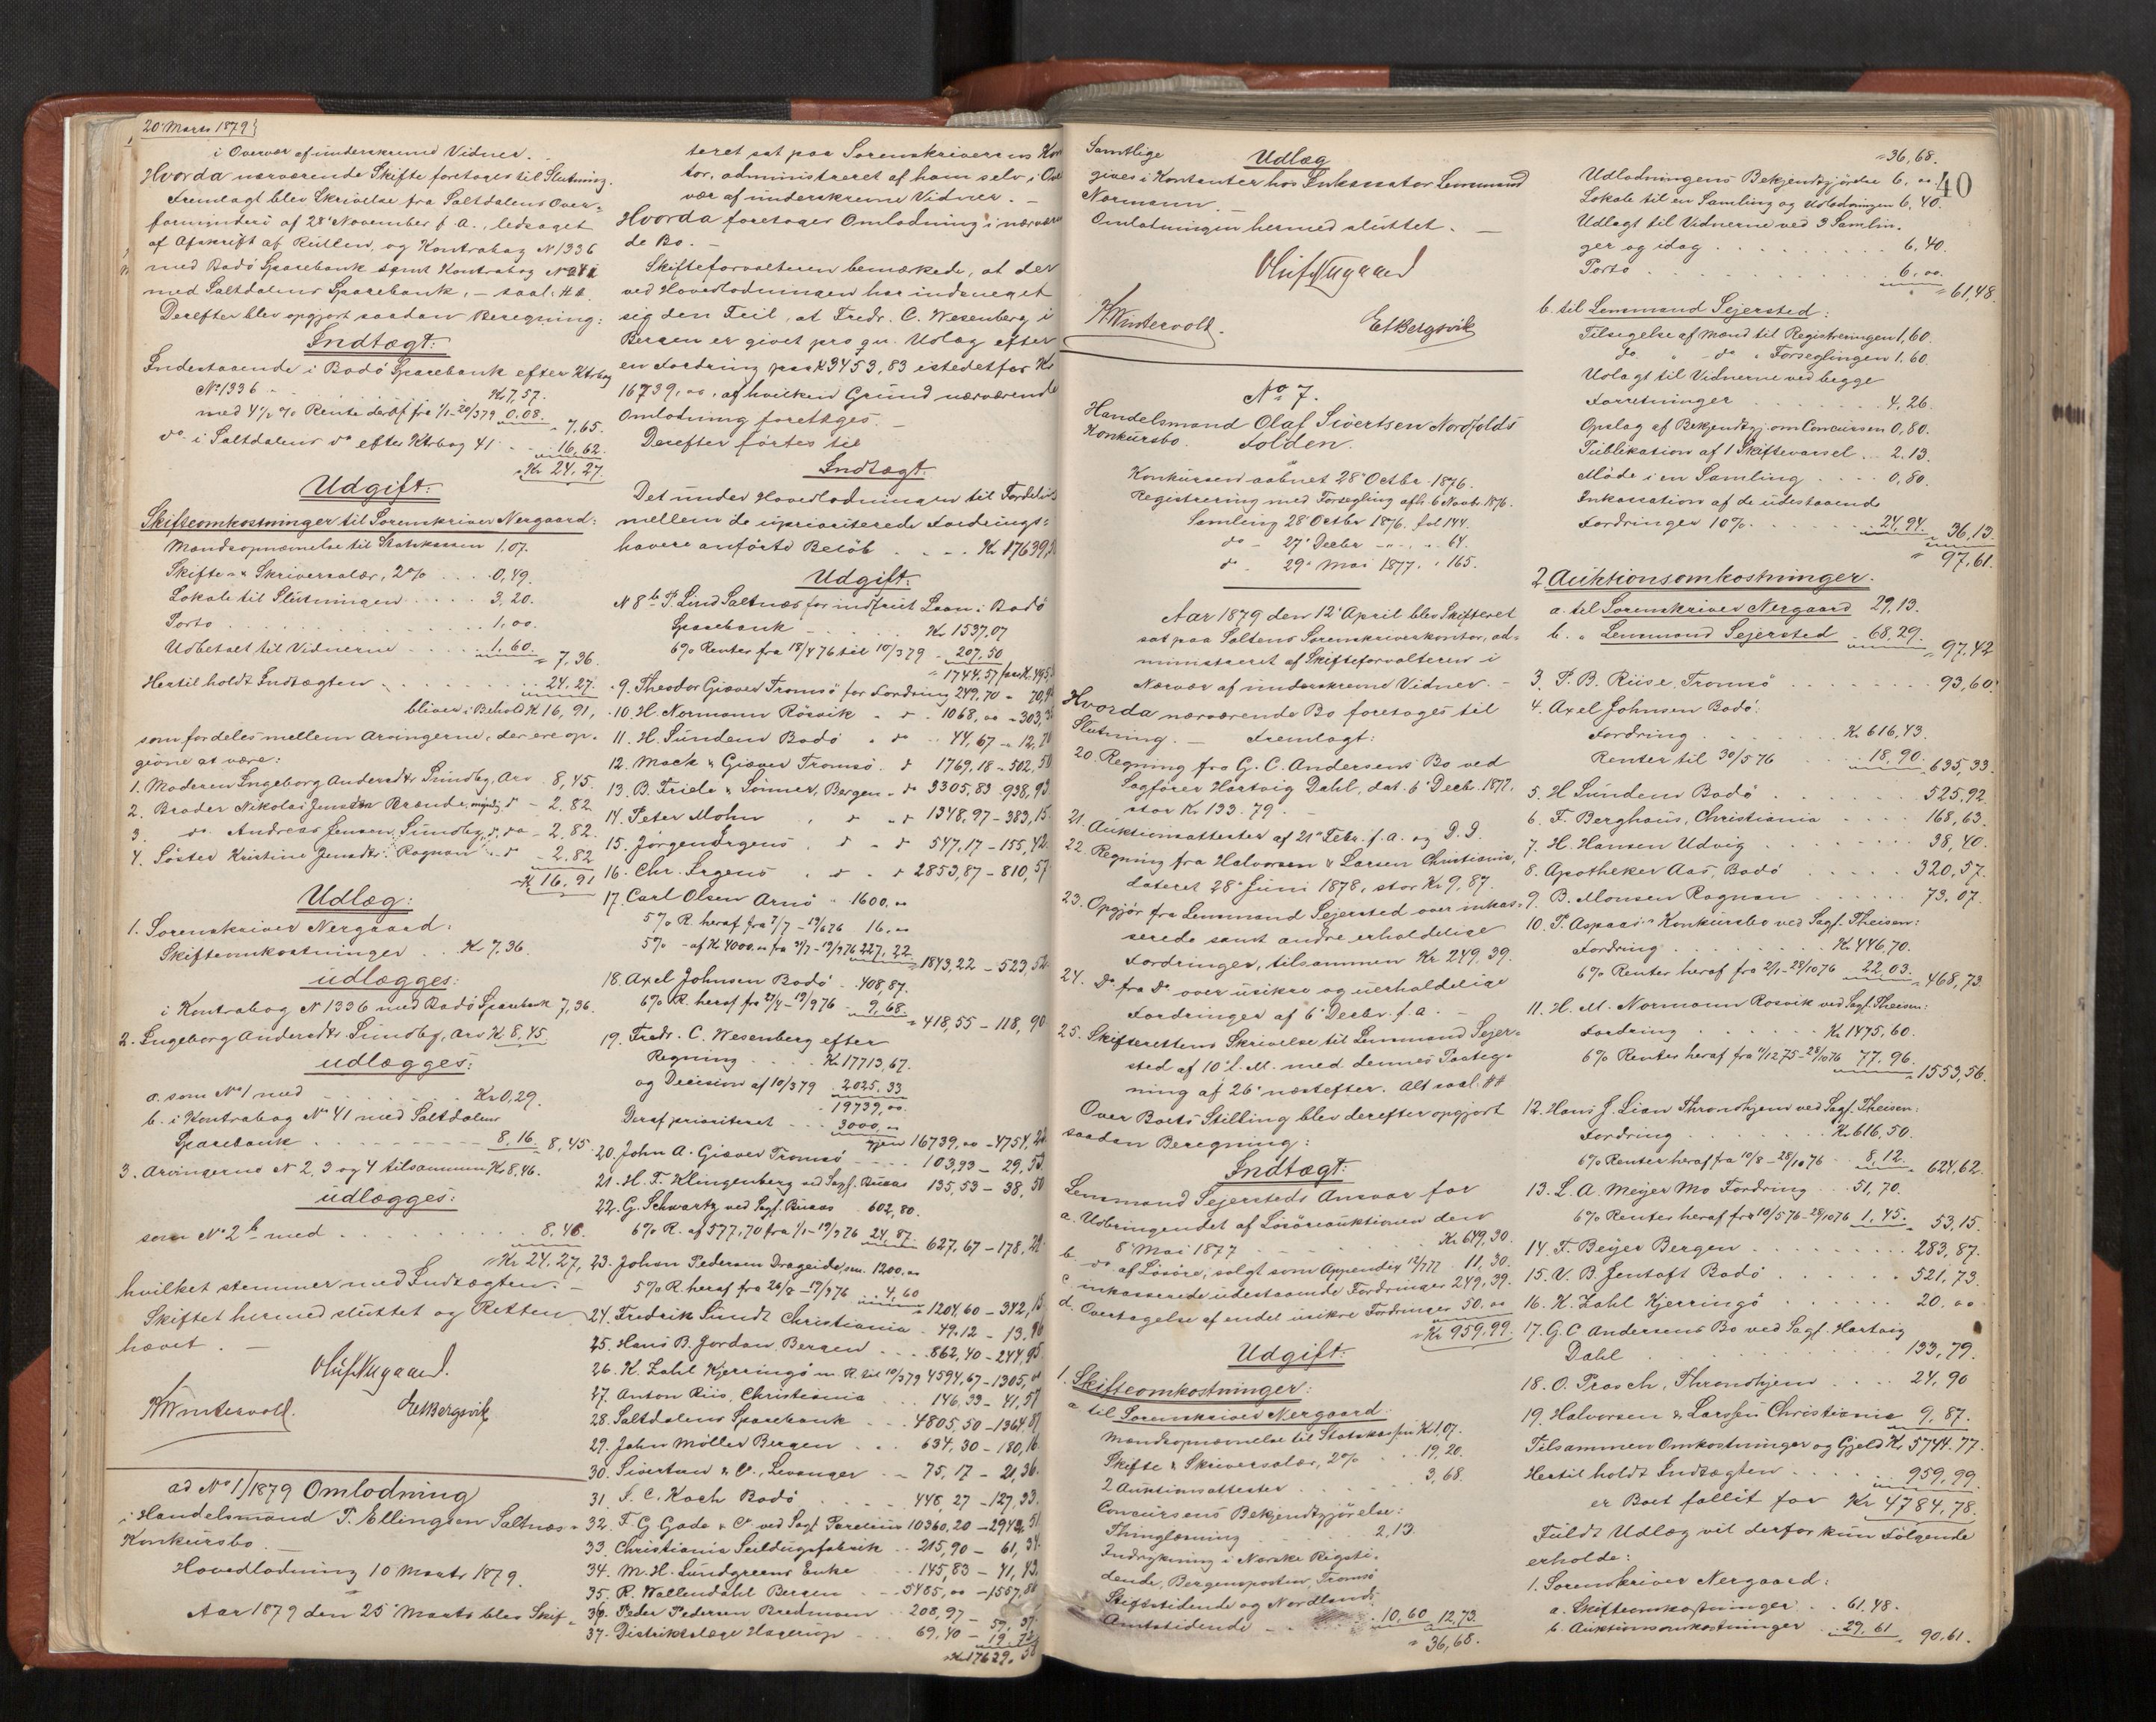 20 Marts 1879
i Overvær af underskrevne Vidner.
Hvorda nærværende Skifte foretages til Slutning.
Fremlagt blev Skrivelse fra Saltdalens Over-
formynderi af 28 November f. A., ledsaget
af Afskrift af Rullen, og Kontrabog N 1336
med Bodö Sparebank samt Kontrabog No 41
med Saltdalens Sparebank, - saal. ##
Derefter blev opgjort saadan Beregning:
Indtægt:
Indestaaende i Bodö Sparebank efter Ktrbog
No 1336 . . Kr 7,57.
med 4% Rente deraf fra 1/1-20/3 79 0.08. " 7,65.
do i Saltdalens do efter Ktrbog 41 . . 16,62.
Kr 24,27.
Udgift:
Skifteomkostninger til Sorenskriver Nergaard:
Mandsopnævnelse til Statskassen 1,07.
Skifte- & Skriversalær, 2% . . . 0,49.
Lokale til Slutningen . . . . 3,20.
Porto . . . . 1,00.
Udbetalt til Vidnerne . . . . 1,60. " 7,36.
Hertil holdt Indtægten . . . . 24,27.
bliver i Behold K 16,91,
som fordeles mellem Arvingerne, der ere op-
givne at være:
1. Moderen Ingeborg Andersdtr Sundby, Arv 8,45.
2. Broder Nikolai Jensen Brænde, myndig, do - 2,82
3. do. Andreas Jensen Sundby, do, do - 2,82.
4. Söster Kristine Jensdtr. Rognan . do - 2,82
K 16,91
Udlæg:
1. Sorenskriver Nergaard:
Skifteomkostninger . . Kr 7,36.
udlægges:
i Kontrabog N 1336 med Bodö Sparebank 7,36.
2. Ingeborg Andersdtr Sundby, Arv K 8,45.
udlægges:
a. som No 1 med . . . . Kr 0,29.
b. i Kontrabog No 41 med Saltdalens
Sparebank . . . . 8,16. 8,45.
3. Arvingerne N 2, 3 og 4 tilsammen Kr 8,46.
udlægges:
som No 2 b med . . . . 8,46.
Kr 24,27,
hvilket stemmer med Indtægten. -
Skiftet hermed sluttet og Retten
hævet. -
Oluf Nergaard.
K Wintervoll. E Bergsvik
ad No 1/1879 Omlodning
i Handelsmand P. Ellingsen Saltnæs
Konkursbo. -
Hovedlodning 10 Marts 1879.
Aar 1879 den 25 Marts blev Skif-
teret sat paa Sorenskriverens Kon
tor, administreret af ham selv i Over
vær af underskrevne Vidner. -
Hvorda foretages Omlodning i nærværen
de Bo. -
Skifteforvalteren bemærkede, at der
ved Hovedlodningen har indsneget
sig den Feil, at Fredr. C. Wesenberg i
Bergen er givet pro qv. Udlæg efter
en Fordring paa K 3453,83 istedetfor Kr
16739,00, af hvilken Grund nærværende
Omlodning foretages. -
Derefter förtes til
Indtægt
Det under Hovedlodningen til Fordeling
mellem de upriviterede Fordrings-
havere anförte Belöb . . . . Kr 17639,
Udgift:
N 8 b P. Lund Saltnæs for indfriet Laan i Bodö
Sparebank . . . . Kr 1537,07
6% Renter fra 18/4 76 til 10/3 79 . 207,50
" 1744.57 for K. 495,
9. Theodor Giæver Tromsö for Fordring 249,70 - 70,
10. H. Normann Rösvik " do " 1068,00 - 303,
11. H. Sundem Bodö " do . . 44,67 - 12,
12. Mack & Giæver Tromsö . do 1769,18 - 502,50
13. B. Friele & Sönner, Bergen " do 3305,83 - 938,93
14. Peter Mohn " do " do 1348,97 - 383,15.
15. Jørgen Irgens " do " do 547,17 - 155,42.
16. Chr. Irgens . do . do 2853,87 - 810,57
17. Carl Olsen Arnö " 1600,00
5% R. heraf fra 7/7 - 19/9 76 16,00
5% - af K 4000,00 fra 31/7 - 19/9 76 227,22. " 1843,22 - 523,52
18. Axel Johnsen Bodö . 408,87.
6% R. heraf fra 27/4 - 19/9 76 . 9,68. " 418,55 - 118,90
19. Fredr. C. Wesenberg efter
Regning . . . Kr 17713,67.
og Decision af 10/3 79 . 2025.33
19739,00.
Deraf prioriteret . . . 3000,00
igjen 16739,00 - 4754,
20. John A. Giæver Tromsö . . . 103,93 - 29,53.
21. H. F. Klingenberg ved Sagf. Buaas 135,53 - 38,50
22. G. Schwartz ved Sagf. Buaas . 602,80.
6% R. af 577,70 fra 1/1 - 19/9 76 24,87. 627,67 - 178,29
23. Johan Pedersen Drageide sen. 1200,00
5% R. heraf fra 26/8 - 19/9 76 . 4,60 " 1204,60 - 342,15
24. Fredrik Sundt Christiania . 49,12 - 13,96
25. Hans B. Jordan, Bergen . . . 862,40 - 244,95.
26. K. Zahl Kjerringö m. R. til 10/3 79 4594,67 - 1305,
27. Anton Riis, Christiania . . . 146,33 - 41,57
28. Saltdalens Sparebank . . . 4805,50 - 1364.87
29. John Möller Bergen . . . 634,30 - 180,16
30. Sivertsen & Co., Levanger . . 75,17 - 21,36.
31. J. C. Koch Bodö . . . . 448,27 - 127,33.
32. F. G. Gade & Co ved Sagf. Parelius 10360,20 - 2942,51
33. Christiania Seildugsfabrik . . 215,90 - 61,34.
34. M. H. Lundgreens Enke . . . 145,83 - 41,43.
35. R. Wallendahl Bergen . . 5485,00 - 1557,88
36. Peder Pedersen Bredmoen . . 208,97 - 59,37.
37. Distriktslæge Hagerup . . . 69,40 - 19,72
Kr 17639,50
Samtlige Udlæg
gives i Kontanter hos Inkassator Lensmand
Normann. -
Omlodningen hermed sluttet. -
Oluf Nergaard
K Wintervoll. E Bergsvik
No 7.
Handelsmand Olaf Sivertsen Nordfolds
Konkursbo. Folden.
Konkursen aabnet 28 Octbr. 1876.
Registrering med Forsegling afh. 6 Novbr. 1876.
Samling 28 Octbr 1876. fol 144.
do - 27 Decbr - " - " 64.
do - 29 Mai 1877. " 165.
Aar 1879 den 12 April blev Skifteret
sat paa Saltens Sorenskriverkontor, ad-
ministreret af Skifteforvalteren i
Nærvær af underskrevne Vidner. -
Hvorda nærværende Bo foretages til
Slutning. - Fremlagt:
20. Regning fra G. C. Andersens Bo ved
Sagförer Hartvig Dahl, dat. 6 Decbr. 1877,
stor Kr 133.79. -
21. Auktionsattester af 21 Febr. f. a. og D. D.
22. Regning fra Halvorsen & Larsen Christiania,
dateret 28 Juni 1878, stor Kr 9,87.
23. Opgjör fra Lensmand Sejersted over inkas-
serede samt andre erholdelige
Fordringer, tilsammen Kr 249,39.
24. Do fra do over usikre og uerholdelige
Fordringer af 6 Decbr. f. a. -
25. Skifterettens Skrivelse til Lensmand Sejer-
sted af 10 f. M. med dennes Paateg-
ning af 26 næstefter. Alt saal. ##
Over Boets Stilling blev derefter opgjort
saadan Beregning:
Indtægt:
Lensmand Sejersteds Ansvar for
a. Udbringendet af Lösöreauktionen den
8 Mai 1877 . . . . Kr 649,30.
b. do af Lösöre, solgt som Appendix 12/7 77 . 11,30.
c. inkasserede udestaaende Fordringer 249,39.
d. Overtagelse af endel usikre Fordringer 50,00
Kr 959,99.
Udgift:
1. Skifteomkostninger:
a. til Sorenskriver Nergaard
Mandsopnævnelse til Statskassen K 1,07.
Skifte & Skriversalær, 2% . . . 19,20.
2 Auktionsattester . . . . 3,68.
Concursens Bekjendtgjörelse:
Thinglæsning . . . 2,13.
Indrykning i Norske Rigsti-
dende, Bergensposten, Tromsö
Stiftstidende og Nordlands
Amtstidende . . . . 10,60 12,73.
" 36,68.
" 36,68.
40
Udlodningens Bekjendtgjörelse 6,00
Lokale til en Samling og Udlodningen 6,40.
Udlagt til Vidnerne ved 3 Samlin-
ger og idag . . . . 6,40.
Porto . . . . 6,00. " 61,48.
b. til Lensmand Sejersted:
Tilsigelse af Mænd til Registreringen 1,60.
do. " - do " Forseglingen 1.60.
Udlagt til Vidnerne ved begge
Forretninger . . . . 4,26.
Opslag af Bekjendtgj. om Concursen 0,80.
Publikation af 1 Skiftevarsel . . 2.13.
Möde i en Samling . . . . 0,80.
Inkassation af de udestaaende
Fordringer 10% . . . . 24,94. " 36,13.
" 97,61.
2 Auktionsomkostninger.
a. til Sorenskriver Nergaard 29,13.
b. " Lensmand Sejersted . 68,29. " 97,42
3. P. B. Riise, Tromsö . . . . 93,60.
4. Axel Johnsen Bodö:
Fordring . . . . Kr 616,43.
Renter til 30/5 76 . . . 18,90. " 635,33.
5. H Sundem Bodö . . . . 525,92.
6. F. Berghaus, Christiania . . . . 168,63.
7. H. Hansen Udvig . . . . 38,40.
8. Apotheker Aas, Bodö . . . . 320,57.
9. B. Monsen Rognan . . . . 73,07.
10. P. Aspaas' Konkursbo ved Sagf. Theisen:
Fordring . . . . Kr 446,70.
6% Renter heraf fra 2/1 - 28/10 76 22,03. " 468,73.
11. H. M. Normann Rösvik ved Sagf. Theisen:
Fordring . . . . Kr 1475,60.
6% Renter heraf fra 11/12 75 - 28/10 76 77,96. " 1553,56.
12. Hans J. Lian Throndhjem ved Sagf. Theisen:
Fordring . . . . Kr 616,50.
6% Renter heraf fra 10/8 - 28/10 76 . 8,12. " 624,62.
13. L. A. Meyer Mo Fordring . . 51,70.
6% Renter heraf fra 10/5 76 - 28/10 76 1,45. " 53,15.
14. F. Beyer Bergen . . . . 283,87.
15. V. B. Jentoft Bodö . . . . 521,73.
16. K. Zahl Kjerringö . . . . 20,00
17. G. C. Andersens Bo ved Sagf. Hartvig
Dahl . . . . 133,79.
18. O. Prosch, Throndhjem . . . . 24,90
19. Halvorsen & Larssen Christiania 9,87.
Tilsammen Omkostninger og Gjeld Kr. 5744.77.
Hertil holdt Indtægten . . . . 959,99.
er Boet fallit for Kr 4784,78.
Fuldt Udlæg vil derfor kun Fölgende
erholde:
1. Sorenskriver Nergaard:
a. Skifteomkostninger . . 61,48.
b. Auktionsomkostninger . . 29,61 " 90,61.